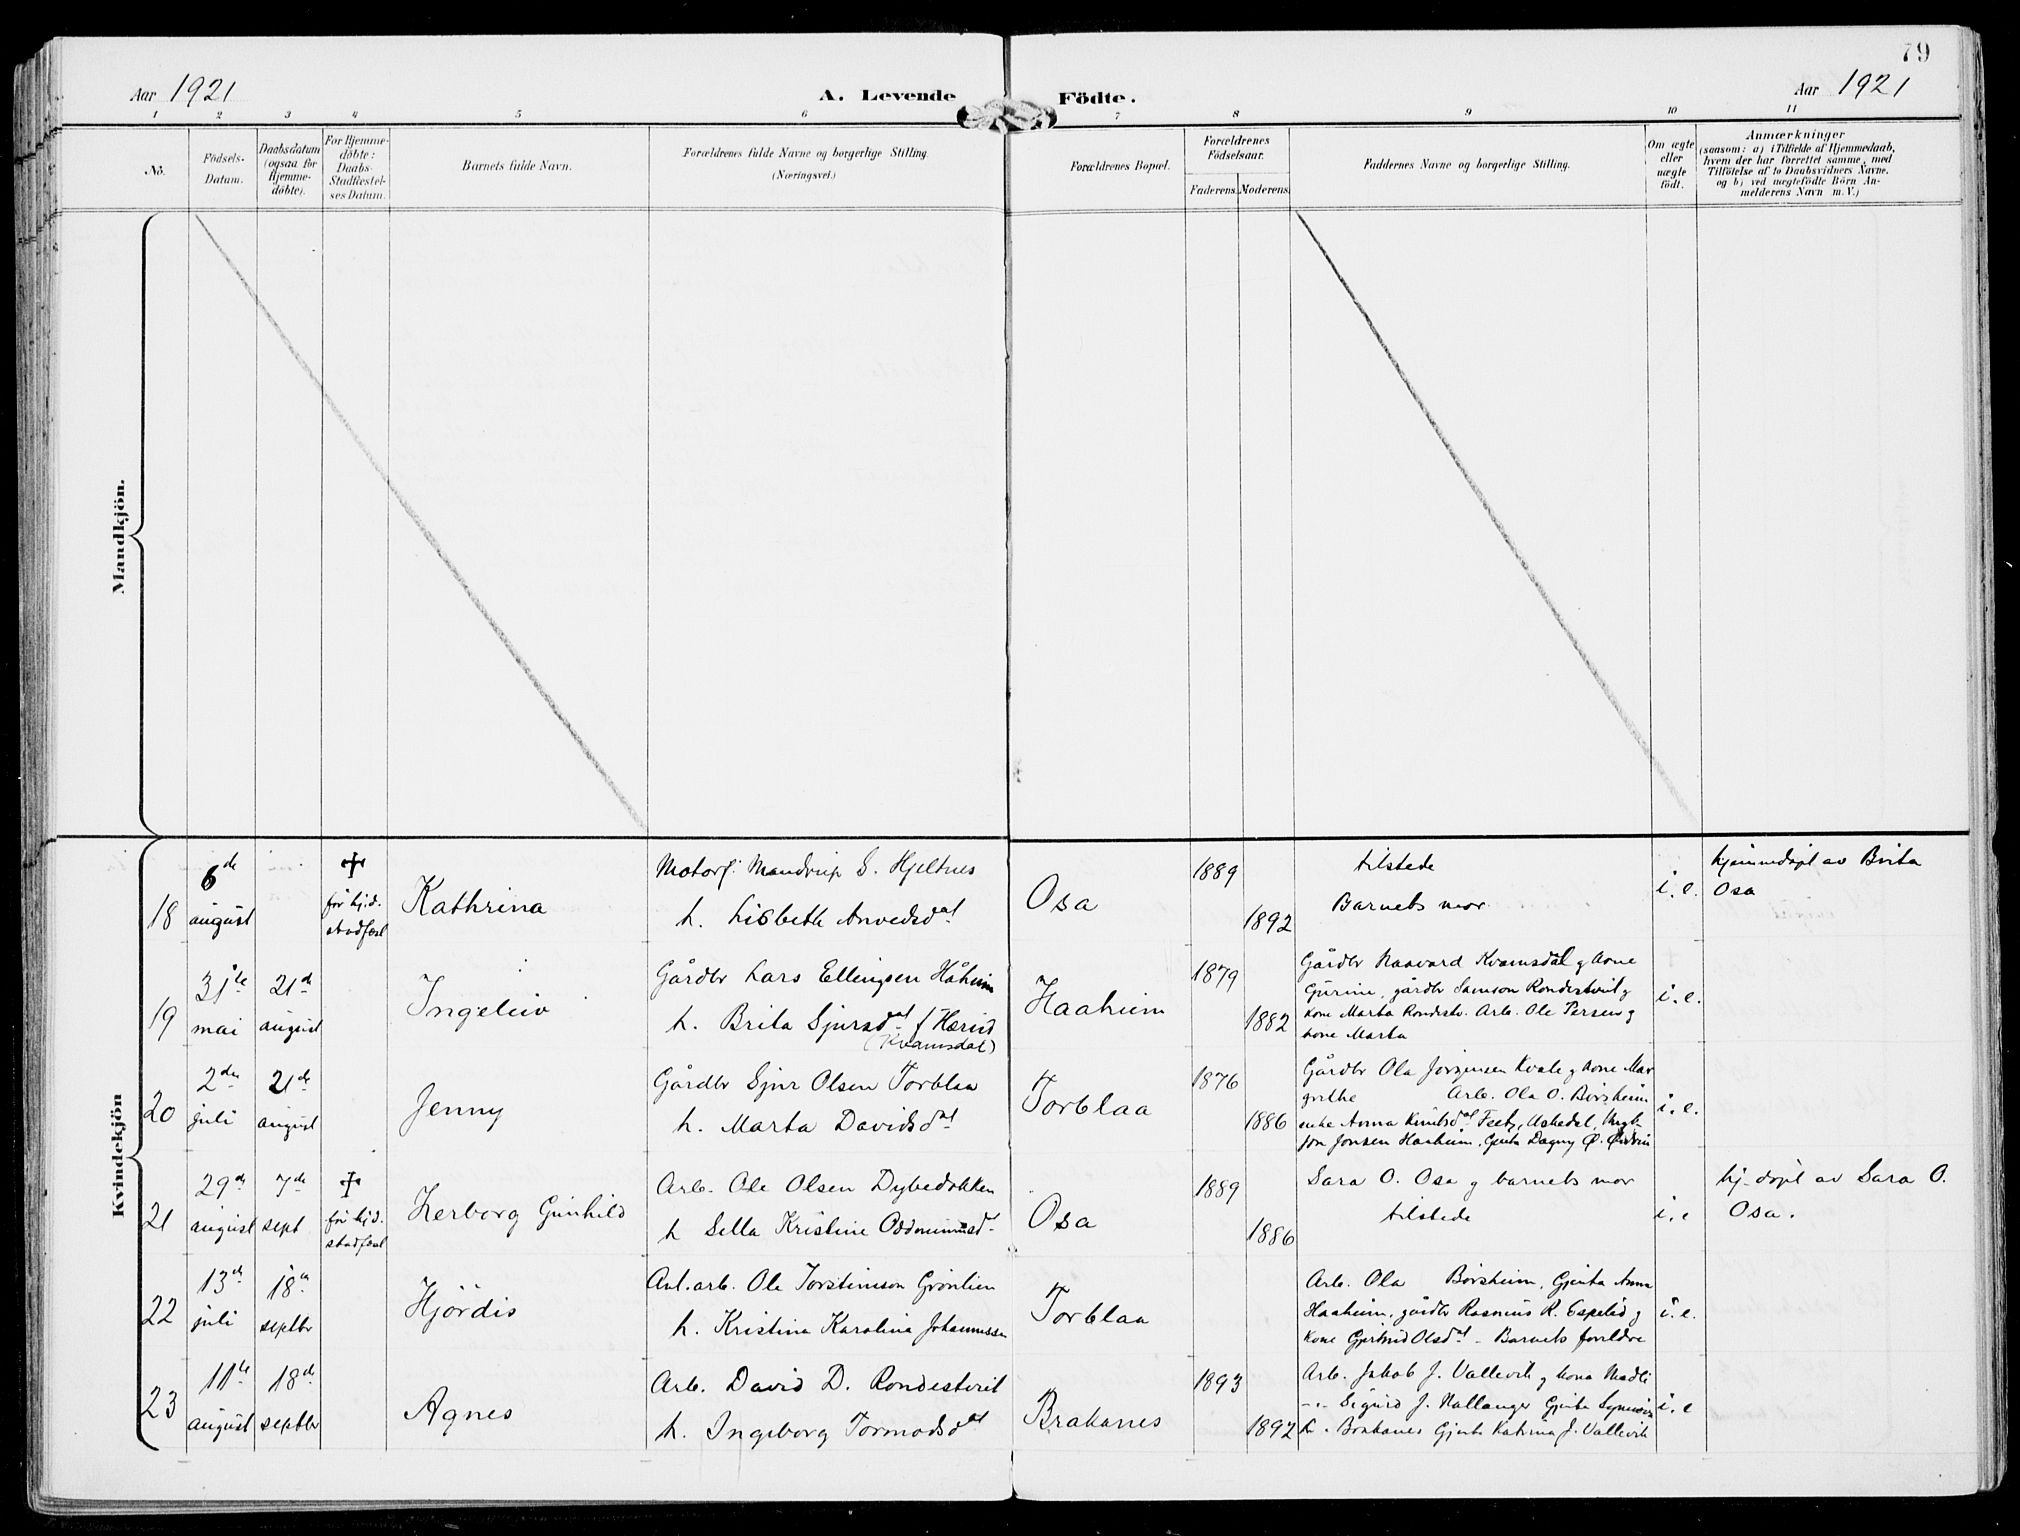 79
Aar 1921
A. Levende
Födte.
Aar 1921
1 2 3 4 5 6 7 8 9 10 11
No.
Födsels-
Datum.
Daabsdatum
(ogsaa for
Hjemme-
döbte).
For Hjemme-
döbte:
Daabs-
Stadfæstel-
ses Datum.
Barnets fulde Navn.
Forældrenes fulde Navne og borgerlige Stilling.
(Næringsvei.)
Forældrenes Bopæl.
Forældrenes
Födselsaar.
Faderens. Moderens.
Faddernes Navne og borgerlige Stilling.
Om ægte
eller
uægte
födt.
Anmærkninger
(saasom: a) i Tilfælde af Hjemmedaab,
hvem der har forrettet samme, med
Tilföielse af to Daabsvidners Navne.
og b) ved uægtefödte Börn An-
melderens Navn m. V.)
Mandkjön.
Kvindekjön
18
6de
august
+
før hjd.
stadfæst
Kathrina
Motorf. Mandrup S. Hjeltnes
h. Lisbeth Arvedsdat
Osa
1889
1892
tilstede
Barnets mor
i. e.
hjemmedøpt av Brita
Osa
19
31te
mai
21de
august
Ingeleiv
Gårdbr Lars Ellingsen Håheim
h. Brita Sjursdat f
(Kvamsdal)
Haaheim
1879
1882
Gårdbr Haavard Kvamsdal g kone
Gurine, gårdbr Samson Rondestveit g
kone Marta Rondestv. Arb. Ole Persen g
kone Marta
i. e.
20
2den
juli
21de
august
Jenny
Gårdbr Sjur Olsen Torblaa
h. Marta Davidsdat
Torblaa
1876
1886
Gårdbr Ola Jørgensen Kvale g kone Mar
grethe Arb. Ola O. Børsheim
enke Anna Knutsdat Ungk.
Jon Jonsen Haaheim, Gjenta Dagny Ø.
i. e.
21
29de
august
7de
sept
+
før hjd.
stadfæst
Herborg Gunhild
Arb. Ole Olsen Dybedokken
h Sella Kristine
Osa
1889
1886
Sara O. Osa g barnets mor
tilstede
i. e
hj. døpt av Sara O.
Osa.
22
13de
juli
18de
septbr
Hjördis
Anl. arb. Ole Torsteinson Grønlien
h. Kristina Karolina Johannessen
Torblaa
Arb. Ola Børsheim, Gjenta Anna
Haaheim, gårdbr Rasmus R. Espelid g
kone Gjertrud Olsdat - Barnets foreldre
i. e.
23
11te
august
18de
septbr
Agnes
Arb. David D. Rondestveit
h. Ingeborg Tormodsdat
Brakanes
1893
1892
Arb. Jakob J. Vallevik g kona Madli
-"- Sigurd J. Hallanger Gjenta Synneva
Brakanes Gjenta Katrina J. Vallevik
i. e